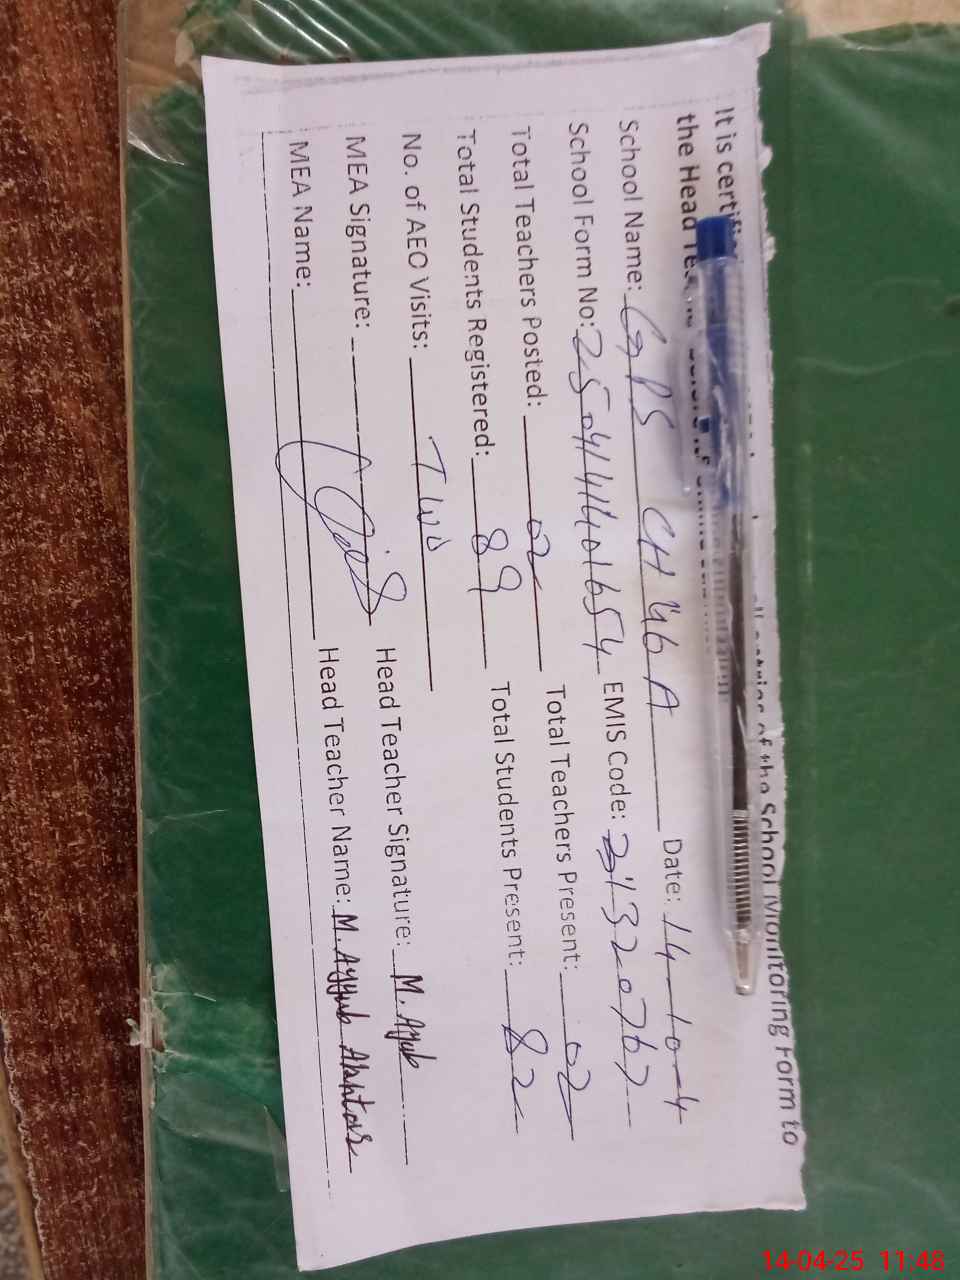 It is certif entries of the School Monitoring Form to
the Head
School Name: GPS CH 46 A Date: 14-10-4
School Form No: 250414401654 EMIS Code: 33132076
Total Teachers Posted: 02 Total Teachers Present: 02
Total Students Registered: 89 Total Students Present: 82
No. of AEO Visits: Two
MEA Signature: Head Teacher Signature: M. Ayub
MEA Name: Head Teacher Name: M. Ayyub
14-04-25 11:48